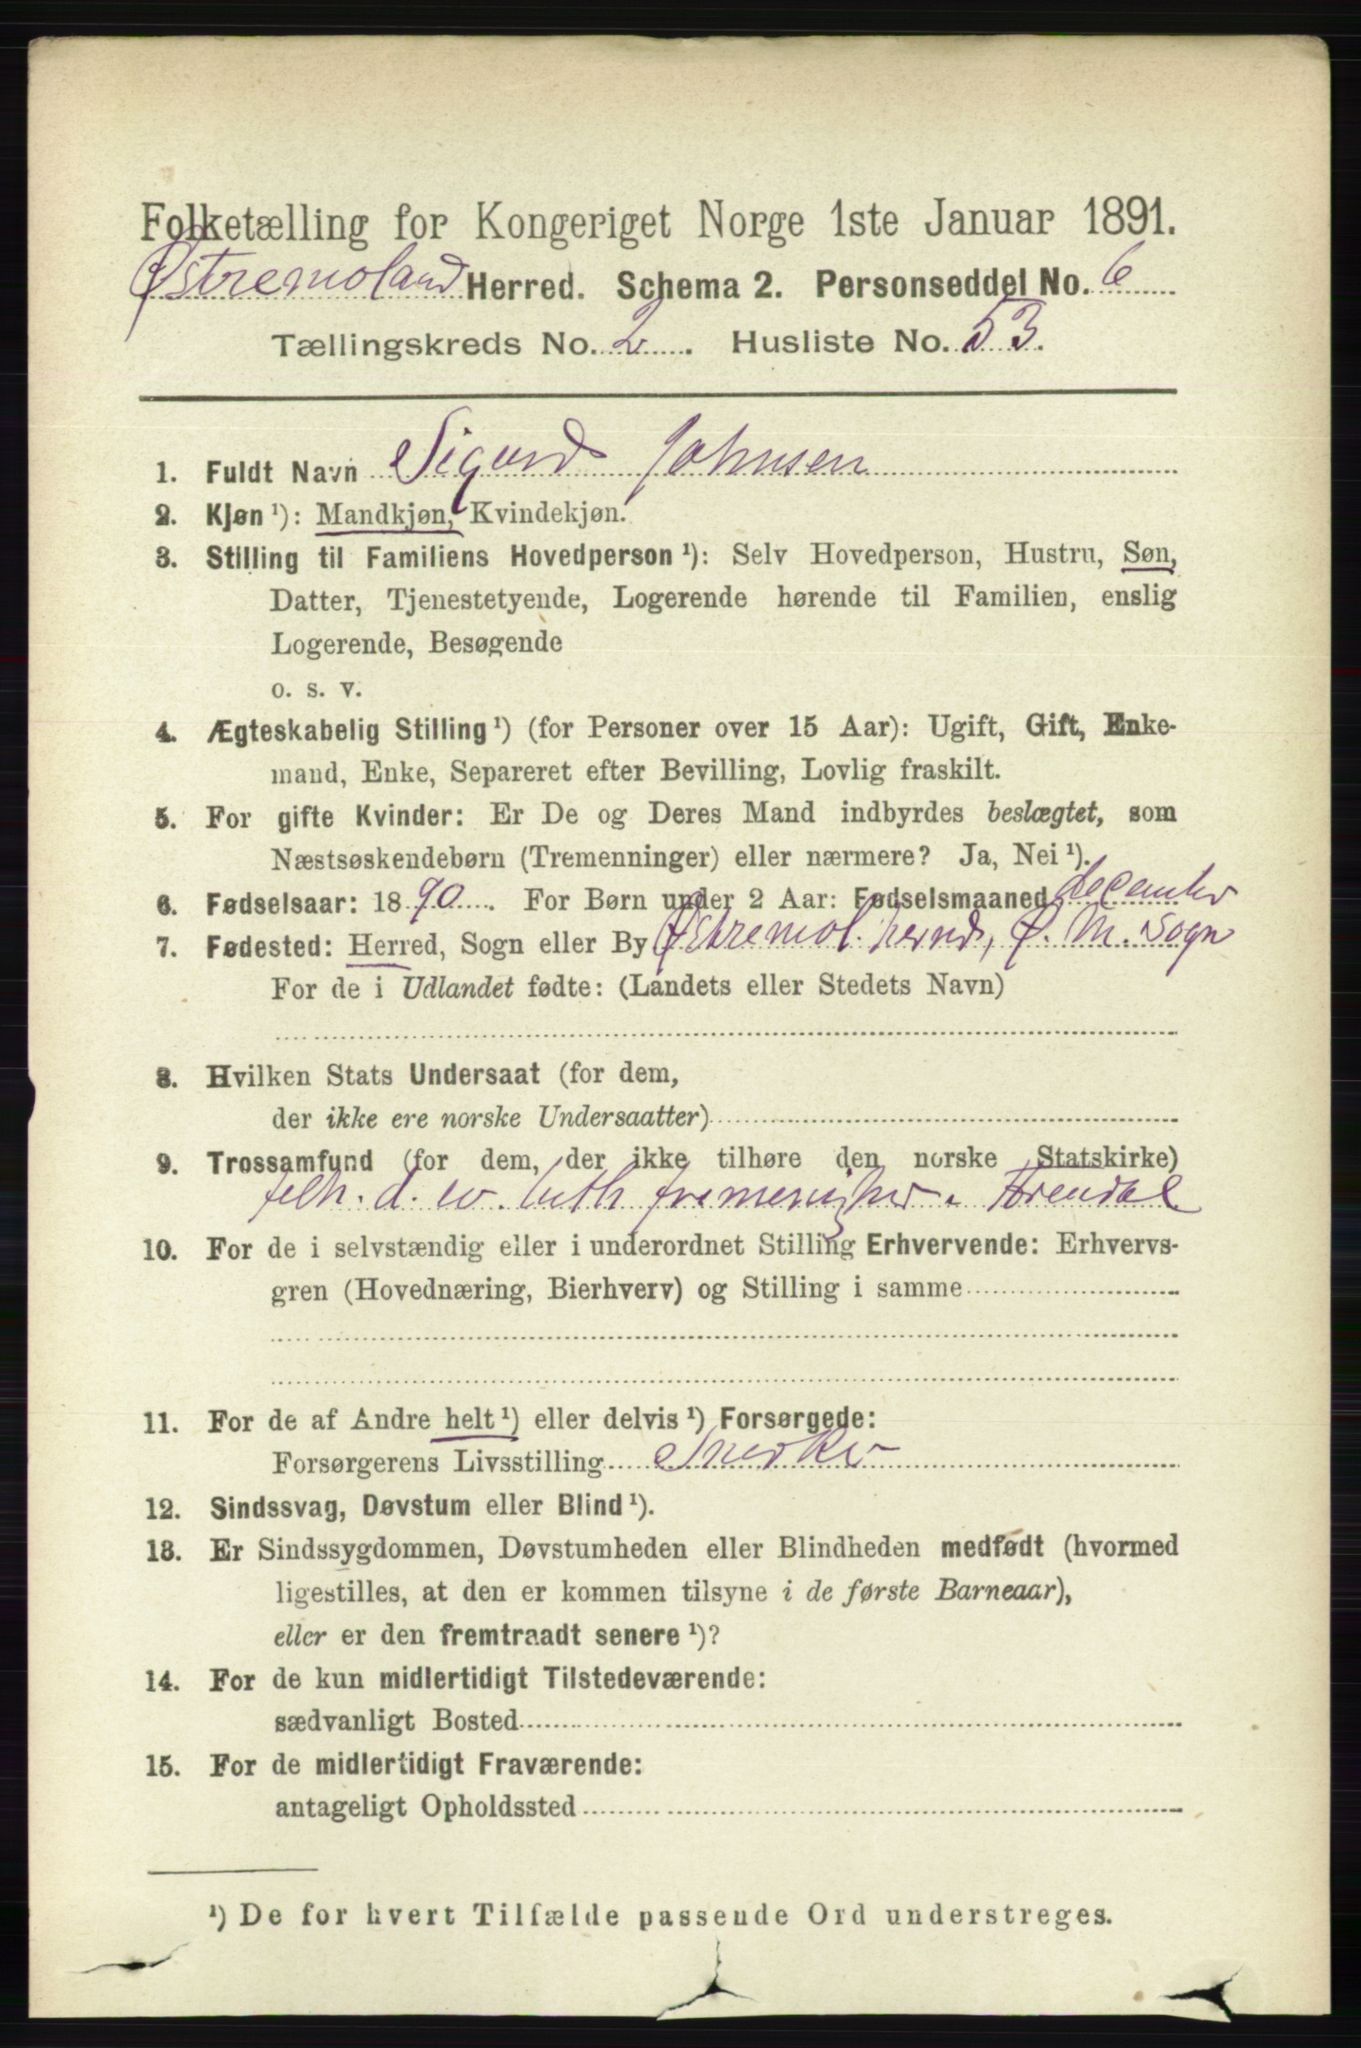 Folketælling for Kongeriget Norge 1ste Januar 1891.
Østremoland Herred. Schema 2. Personseddel No. 6
Tællingskreds No. 2. Husliste No. 53.
1. Fuldt Navn Sigurd Johnsen
2. Kjøn ¹): Mandkjøn, Kvindekjøn.
3. Stilling til Familiens Hovedperson ¹): Selv Hovedperson, Hustru, Søn,
Datter, Tjenestetyende, Logerende hørende til Familien, enslig
Logerende, Besøgende
o. s. v.
4. Ægteskabelig Stilling ¹) (for Personer over 15 Aar): Ugift, Gift, Enke-
mand, Enke, Separeret efter Bevilling, Lovlig fraskilt.
5. For gifte Kvinder: Er De og Deres Mand indbyrdes beslægtet, som
Næstsøskendebørn (Tremenninger) eller nærmere? Ja, Nei ¹).
6. Fødselsaar: 1890. For Børn under 2 Aar: Fødselsmaaned december
7. Fødested: Herred, Sogn eller By Østremol. herred, Ø. M. Sogn
For de i Udlandet fødte: (Landets eller Stedets Navn)
8. Hvilken Stats Undersaat (for dem,
der ikke ere norske Undersaatter)
9. Trossamfund (for dem, der ikke tilhøre den norske Statskirke)
d. ev. luth frimenighed i Arendal
10. For de i selvstændig eller i underordnet Stilling Erhvervende: Erhvervs-
gren (Hovednæring, Bierhverv) og Stilling i samme
11. For de af Andre helt ¹) eller delvis ¹) Forsørgede:
Forsørgerens Livsstilling Snedker
12. Sindssvag, Døvstum eller Blind ¹).
13. Er Sindssygdommen, Døvstumheden eller Blindheden medfødt (hvormed
ligestilles, at den er kommen tilsyne i de første Barneaar),
eller er den fremtraadt senere ¹)?
14. For de kun midlertidigt Tilstedeværende:
sædvanligt Bosted
15. For de midlertidigt Fraværende:
antageligt Opholdssted
¹) De for hvert Tilfælde passende Ord understreges.